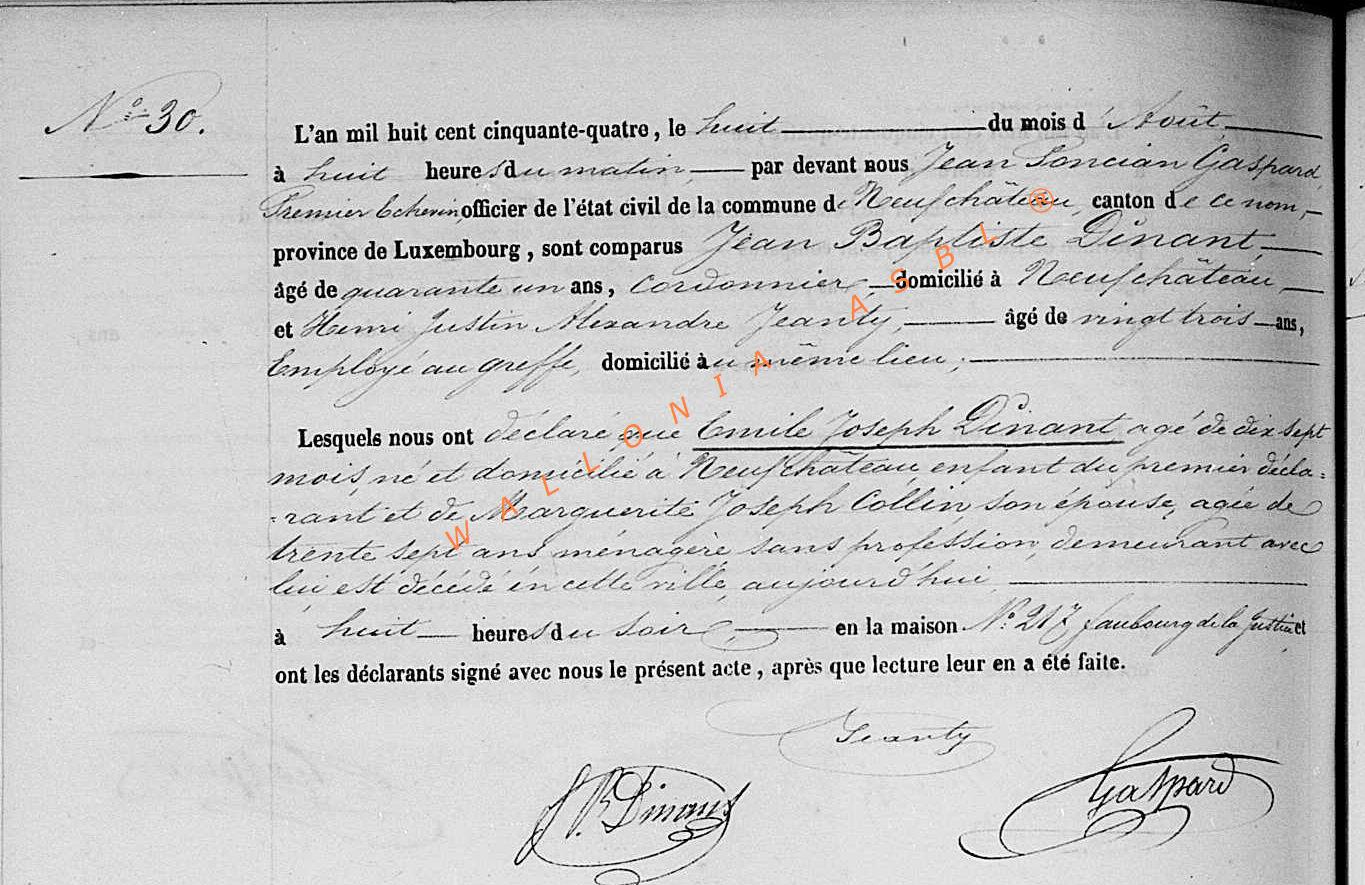 N° 30.
L'an mil huit cent cinquante-quatre, le huit du mois d'Août,
à huit heures du matin, par devant nous Jean Poncian Gaspard,
Premier Echevin, officier de l'état civil de la commune de Neufchâteau, canton de ce nom,
province de Luxembourg, sont comparus Jean Baptiste Dinant,
âgé de quarante un ans, Cordonnier, domicilié à Neufchâteau,
et Henri Justin Alexandre Jeanty, âgé de vingt trois ans,
Employé au greffe, domicilié au même lieu;
Lesquels nous ont déclaré que Emile Joseph Dinant agé de dix sept
mois, né et domicilié à Neufchâteau, enfant du premier décla=
=rant et de Marguerite Joseph Collin, son épouse, agée de
trente sept ans ménagère sans profession, demeurant avec
lui, est décédé en cette ville, aujourd'hui
à huit heures du soir, en la maison N° 217, faubourg de la Justice et
ont les déclarants signé avec nous le présent acte, après que lecture leur en a été faite.
Jeanty
J B Dinant
Gaspard
WALLONIA ASBL ®